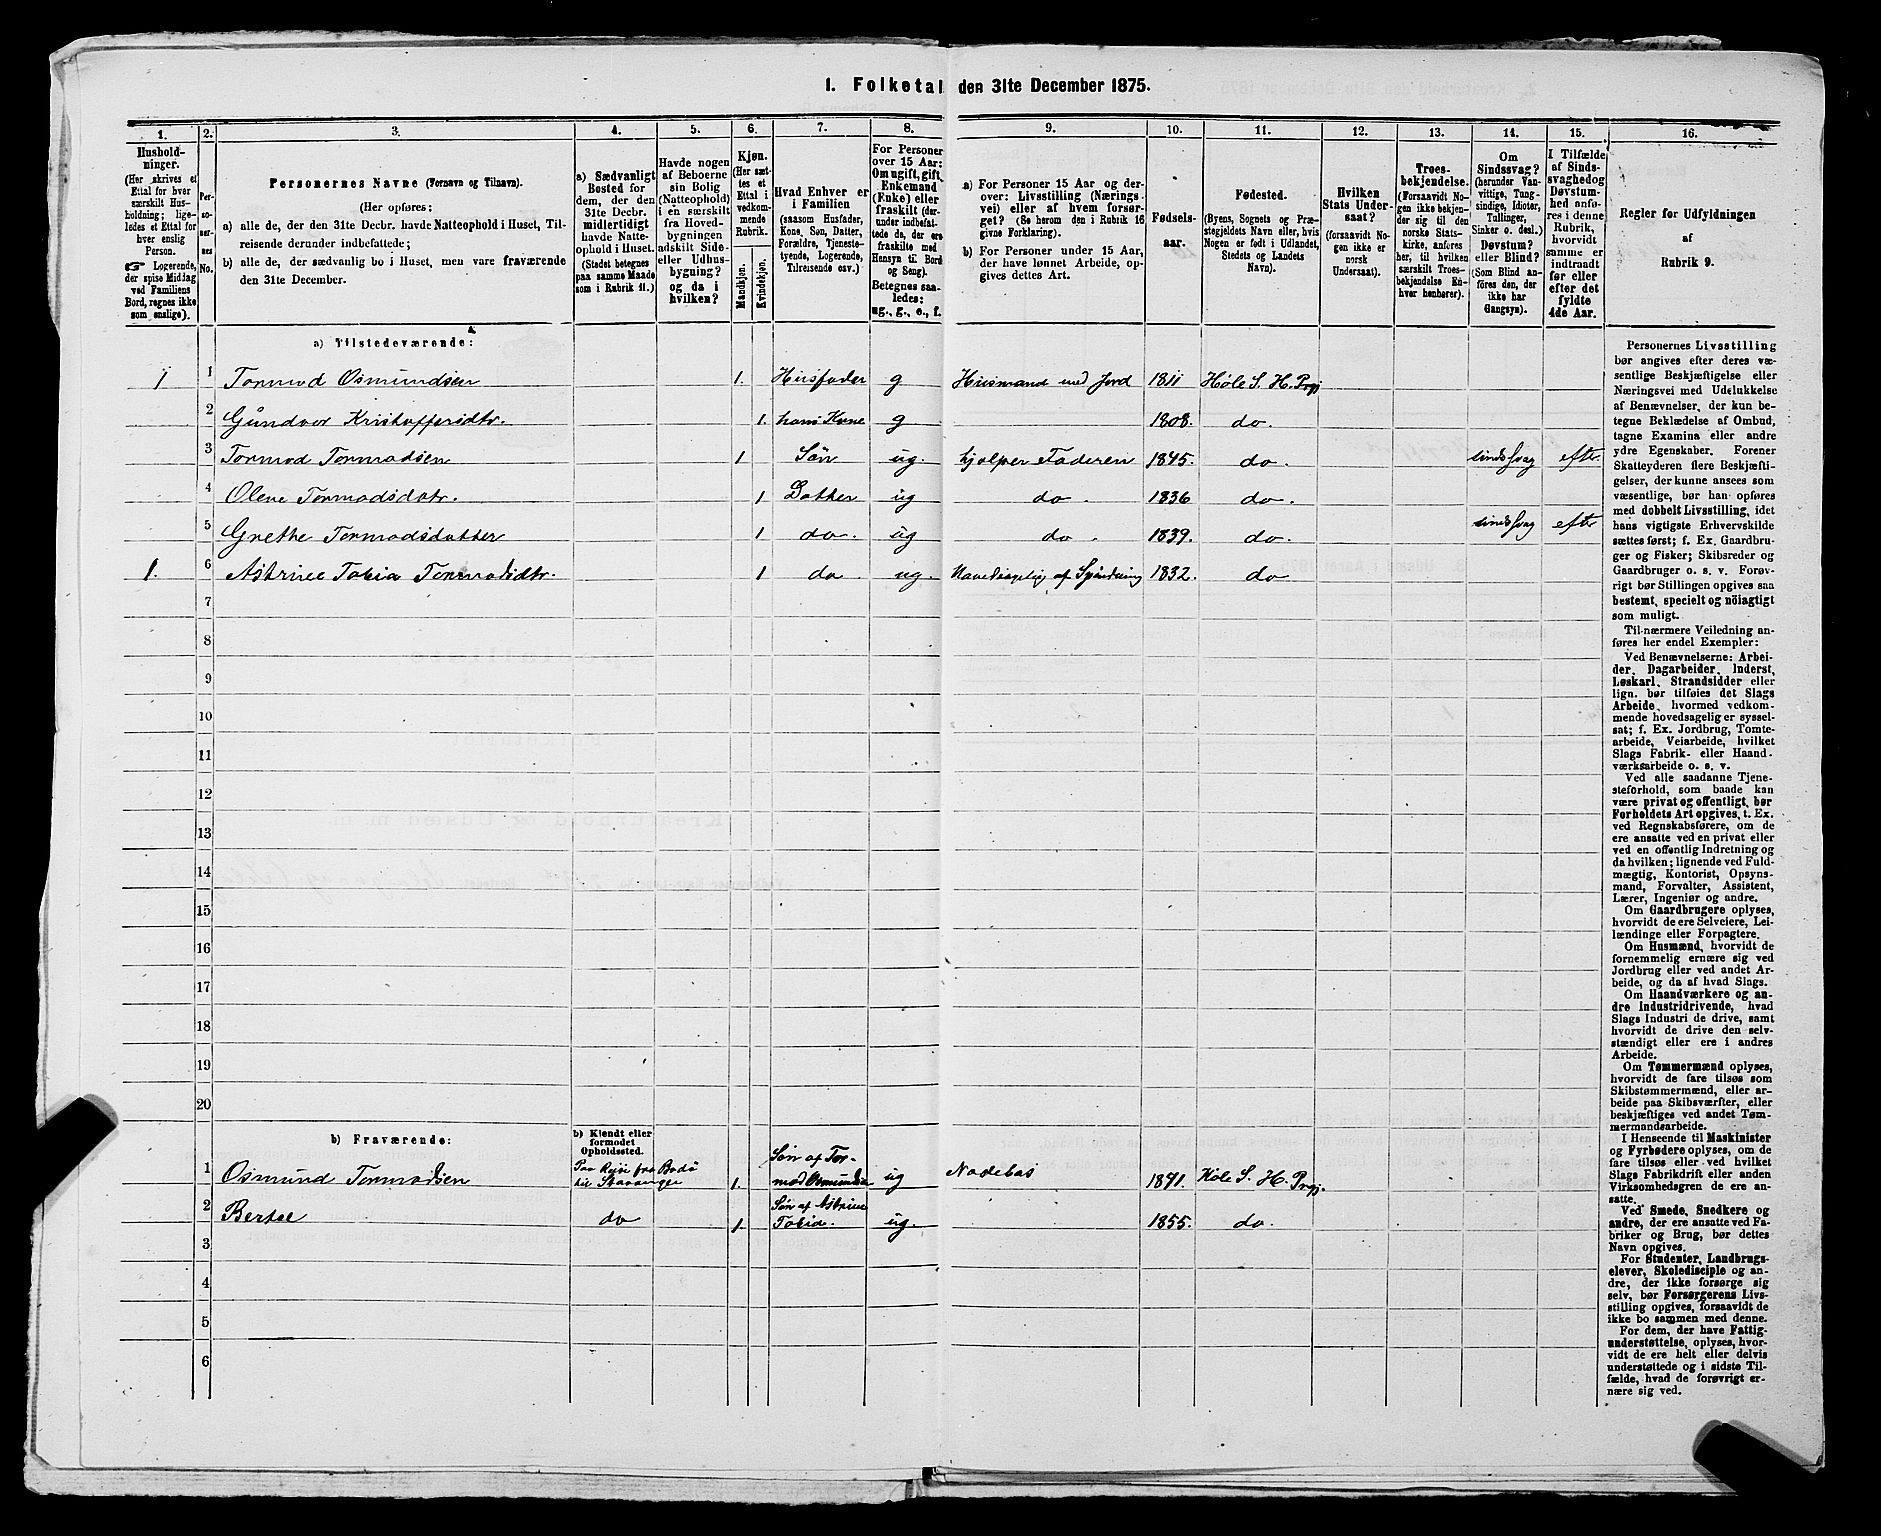 1. Folketal den 31te December 1875.
1. 2. 3. 4. 5. 6. 7. 8. 9. 10. 11. 12. 13. 14. 15. 16.
Hushold-
ninger.
(Her skrives et
Ettal for hver
særskilt Hus-
holdning; lige-
ledes et Ettal for
hver enslig
Person.
☞ Logerende,
der spise Middag
ved Familiens
Bord, regnes ikke
som enslige).
Per-
so-
ner-
nes
No.
Personernes Navne (Fornavn og Tilnavn).
(Her opføres:
a) alle de, der den 31te Decbr. havde Natteophold i Huset, Til-
reisende derunder indbefattede;
b) alle de, der sædvanlig bo i Huset, men vare fraværende
den 31te December.
a) Sædvanligt
Bosted for
dem, der den
31te Decbr.
midlertidigt
havde Natte-
ophold i Huset.
(Stedet betegnes
paa samme Maade
som i Rubrik 11.)
Havde nogen
af Beboerne
sin Bolig
(Natteophold)
i en særskilt
fra Hoved-
bygningen
adskilt Side-
eller Udhus-
bygning?
og da i
hvilken?
Kjøn.
(Her sæt-
tes et
Ettal i
vedkom-
mende
Rubrik.
Mandkjøn.
Kvindekjøn.
Hvad Enhver er
i Familien
(saasom Husfader,
Kone, Søn, Datter,
Forældre, Tjeneste-
tyende, Logerende,
Tilreisende osv.)
For Personer
over 15 Aar:
Om ugift, gift,
Enkemand
(Enke) eller
fraskilt (der-
under indbefat-
tede da, der ere
fraskilte med
Hensyn til Bord
og Seng).
Betegnes saa-
ledes:
ug., g., e., f.
a) For Personer 15 Aar og der-
over: Livsstilling (Nærings-
vei) eller af hvem forsør-
get? (Se herom den i Rubrik 16
givne Forklaring).
b) For Personer under 15 Aar,
der have lønnet Arbeide, op-
gives dettes Art.
Fødsels-
aar.
Fødested.
(Byens, Sognets og Præ-
stegjeldets Navn eller, hvis
Nogen er født i Udlandet,
Stedets og Landets
Navn).
Hvilken
Stats Under-
saat?
(forsaavidt No-
gen ikke er
norsk
Undersaat).
Troes-
bekjendelse.
(Forsaavidt No-
gen ikke bekjen-
der sig til den
norske Stats-
kirke, anføres
her, til hvilken
særskilt Troes-
bekjendelse En-
hver henhører).
Om
Sindssvag?
(herunder Van-
vittige, Tung-
sindige, Idioter,
Tullinger,
Sinker o. desl.)
Døvstum?
eller Blind?
(Som Blind an-
føres den, der
ikke har
Gangsyn).
I Tilfælde
af Sinds-
svaghed og
Døvstum-
hed anfø-
res i denne
Rubrik,
hvorvidt
samme er
indtraadt
før eller
efter det
fyldte
4de Aar.
Regler for Udfyldningen
af
Rubrik 9.
a) Tilstedeværende:
1 1 Tormod Osmundsen 1. Husfader g Husmand med Jord 1811 Høle S. H. Prgj
2 Gundvor Kristoffersdtr. 1. hans Kone g 1808. do.
3 Tormod Tormodsen 1 Søn ug. hjælper Faderen 1845. do. sindssvag efter
4 Olene Tormodsdatr. 1 Datter ug do. 1836 do.
5 Grethe Tormodsdatter 1 do. ug do. 1839. do. sindssvag efter
1. 6 Astrine Tobia Tormodsdtr. 1 do ug. Hovedsagelig af Spinding 1832. do
7
8
9
10
11
12
13
14
15
16
17
18
19
20
b) Fraværende:
b) Kjendt eller
formodet
Opholdssted.
1 Osmund Tormodsen Paa Rejse fra Bodø
til Stavanger 1. Søn af Tor-
mod Osmundsen ug Nodebas 1841. Høle S. H. Prgj.
2 Bertel do 1 Søn af Astrine
Tobia. ug. 1855. do.
3
4
5
6
Personernes Livsstilling
bør angives efter deres væ-
sentlige Beskjæftigelse eller
Næringsvei med Udelukkelse
af Benævnelser, der kun be-
tegne Beklædelse af Ombud,
tagne Examina eller andre
ydre Egenskaber. Forener
Skatteyderen flere Beskjæfti-
gelser, der kunne ansees som
væsentlige, bør han opføres
med dobbelt Livsstilling, idet
hans vigtigste Erhvervskilde
sættes først; f. Ex. Gaardbru-
ger og Fisker; Skibsreder og
Gaardbruger o. s. v. Forøv-
rigt bør Stillingen opgives saa
bestemt, specielt og nöiagtigt
som muligt.
Til nærmere Veiledning an-
føres her endel Exempler:
Ved Benævnelserne: Arbei-
der, Dagarbeider, Inderst,
Løskarl, Strandsidder eller
lign. bør tilføies det Slags
Arbeide, hvormed vedkom-
mende hovedsagelig er syssel-
sat; f. Ex. Jordbrug, Tomte-
arbeide, Veiarbeide, hvilket
Slags Fabrik- eller Haand-
værksarbeide o. s. v.
Ved alle saadanne Tjene-
steforhold, som baade kan
være privat og offentligt, bør
Forholdets Art opgives, t. Ex.
ved Regnskabsførere, om de
ere ansatte ved en privat eller
ved en offentlig Indretning og
da hvilken; lignende ved Fuld-
mægtig, Kontorist, Opsyns-
mand, Forvalter, Assistent,
Lærer, Ingeniør og andre.
Om Gaardbrugere oplyses,
hvorvidt de ere Selveiere, Lei-
lændinge eller Forpagtere.
Om Husmænd, hvorvidt de
fornemmelig ernære sig ved
Jordbrug eller ved andet Ar-
beide, og da af hvad Slags.
Om Haandværkere og an-
dre Industridrivende, hvad
Slags Industri de drive, samt
hvorvidt de drive den selv-
stændigt eller ere i andres
Arbeide.
Om Tømmermænd oplyses,
hvorvidt de fare tilsøs som
Skibstømmermænd, eller ar-
beide paa Skibsværfter, eller
beskjæftiges ved andet Tøm-
mermandsarbeide.
I Henseende til Maskinister
og Fyrbødere oplyses, om de
fare tilsøs eller ved hvilket
Slags Fabrikdrift eller anden
Virksomhedsgren de ere an-
satte.
Ved Smede, Snedkere og
andre, der ere ansatte ved Fa-
briker og Brug, bør dettes
Navn opgives.
For Studenter, Landbrugs-
elever, Skoledisciple og an-
dre, der ikke forsørge sig
selv, bør Forsørgerens Livs-
stilling opgives, forsaavidt de
ikke bo sammen med denne.
For dem, der have Fattig-
understøttelse, oplyses, hvor-
vidt de ere helt eller delvis
understøttede og i sidste Til-
fælde, hvad de forøvrigt er-
nære sig ved.